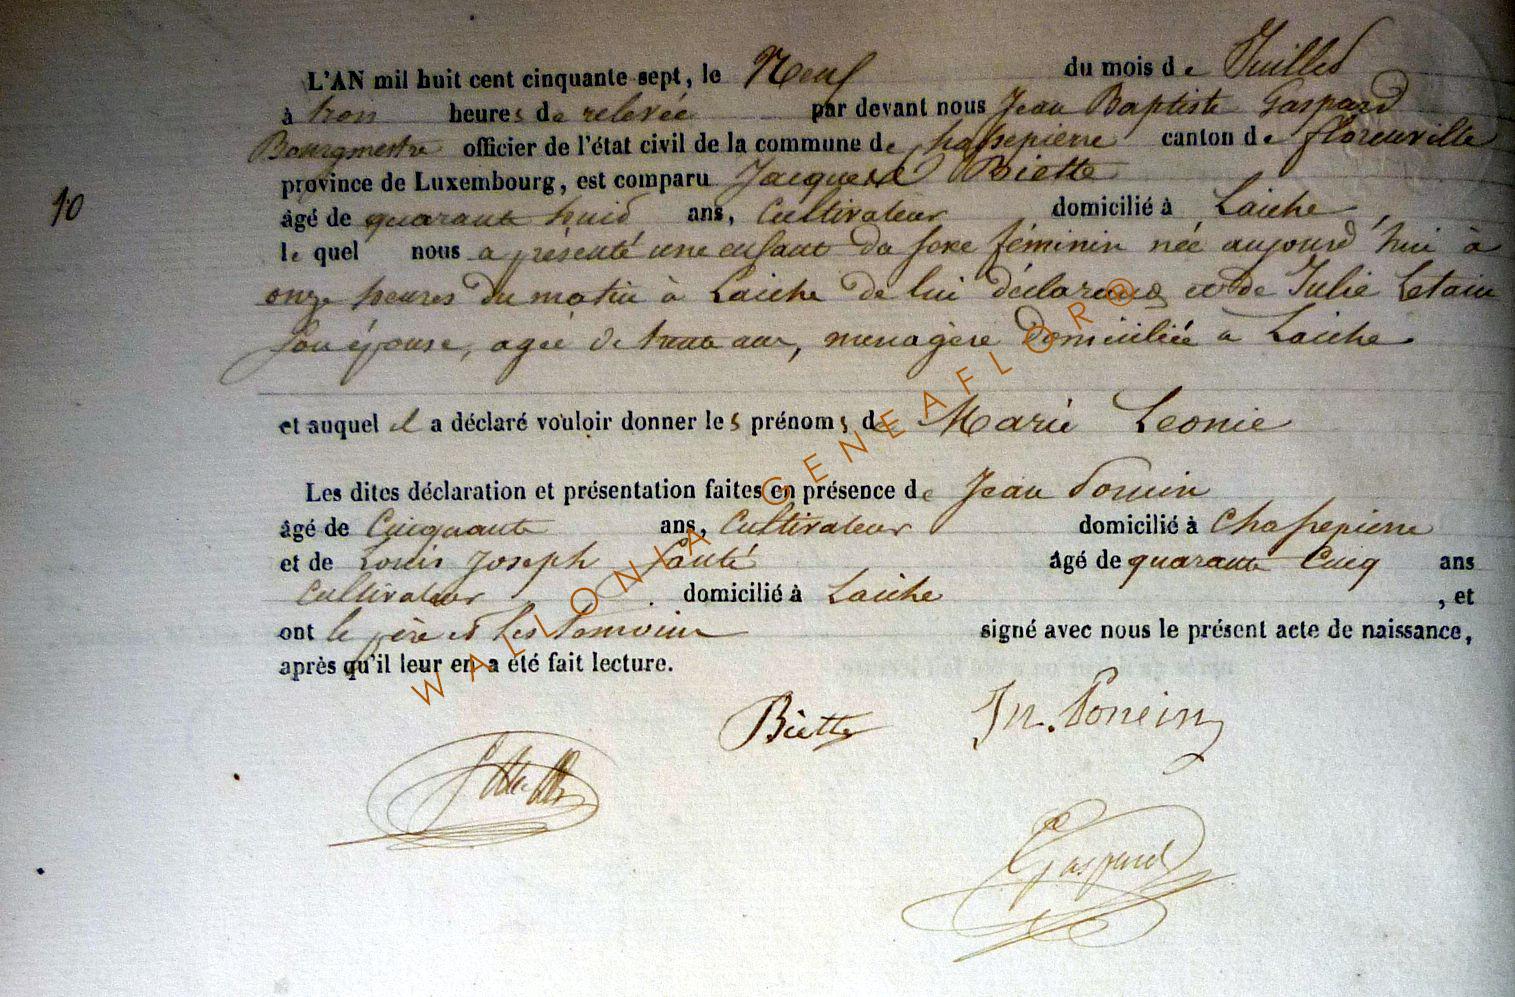 L'AN mil huit cent cinquante sept, le Neuf du mois de Juillet
à trois heures de relevée par devant nous Jean Baptiste Gaspard
Bourgmestre officier de l'état civil de la commune de Chassepierre canton de florenville
province de Luxembourg, est comparu Jacques Biette
10
âgé de quarante huit ans, Cultivateur domicilié à Laiche,
le quel nous a présenté une enfant du sexe féminin née aujourd'hui à
onze heures du matin à Laiche de lui déclarant et de Julie Letain
son épouse, agée de ans, menagère domiciliée à Laiche.
et auquel il a déclaré vouloir donner les prénoms de Marie Leonie
Les dites déclaration et présentation faites en présence de Jean Poncin
âgé de Cinquante ans, Cultivateur domicilié à Chassepierre
et de Louis Joseph âgé de quarante Cinq ans
Cultivateur domicilié à Laiche, et
ont le père et les temoins signé avec nous le présent acte de naissance,
après qu'il leur en a été fait lecture.
WALLONIA GENEAFLOR®
Biette Jn. Poncin
Gaspard